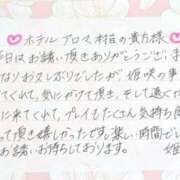 ホテルアロマ村名の貴方様
本日はお誘い頂きありがとうございま
なりお久しぶりでしたが、姫咲の事
えてくれて、気にかけて頂き、そして逢って
に来てくれて、プレイもたくさん気持ち良
って頂き嬉しかったです。楽しい時間を
お誘いお待ちしております。
姫